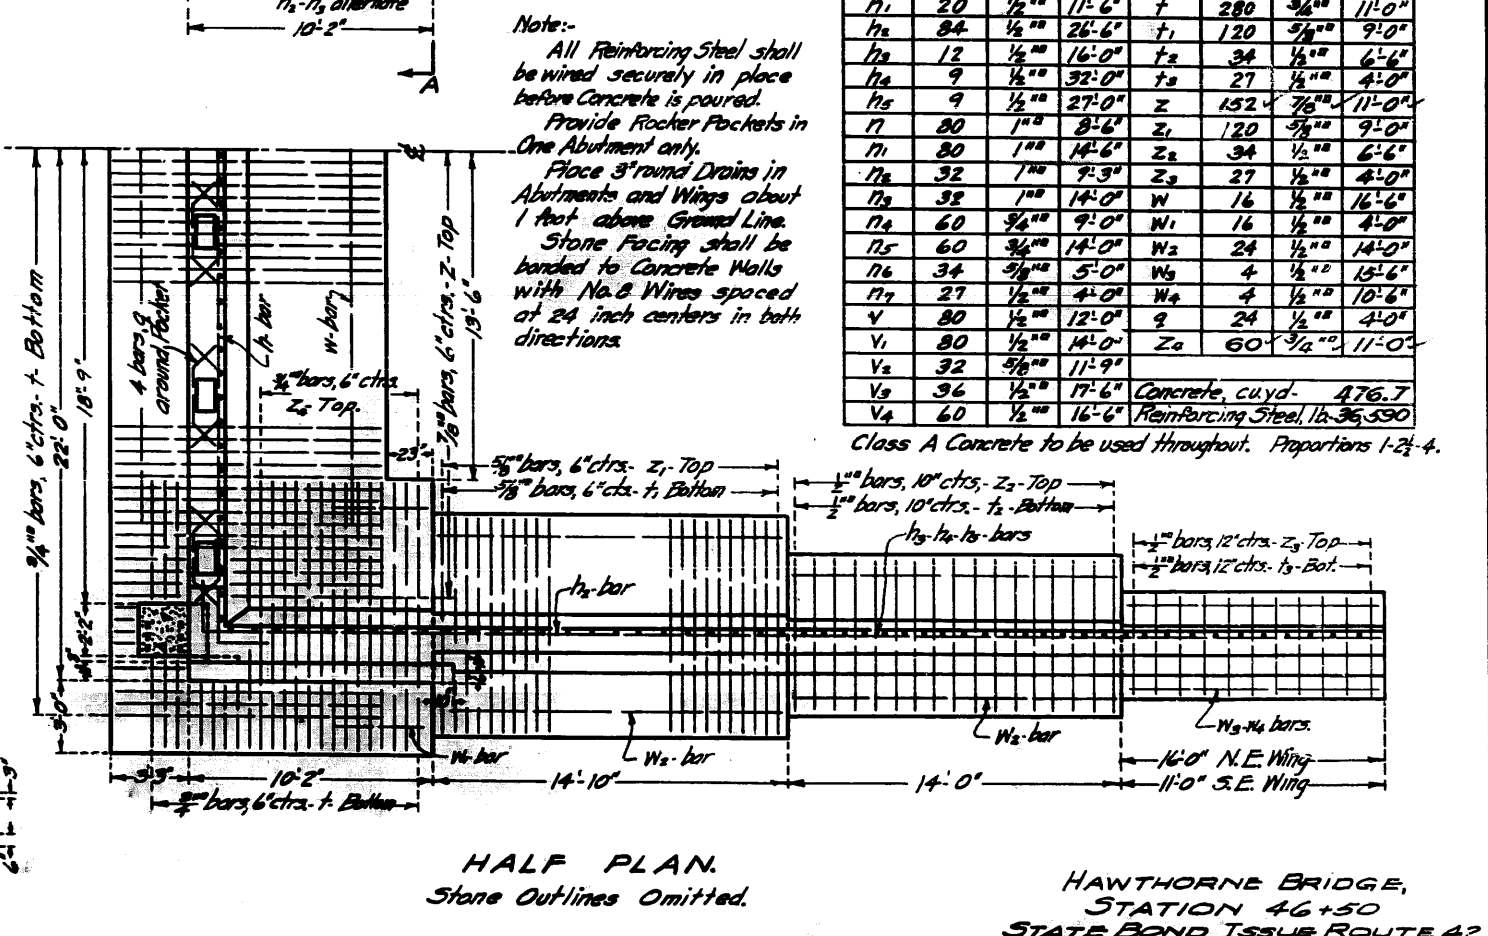 n₂-n₃ alternate
10'-2"
A
Note:-
All Reinforcing Steel shall
be wired securely in place
before Concrete is poured.
Provide Rocker Pockets in
One Abutment only.
Place 3" round Drains in
Abutments and Wings about
1 foot above Ground Line.
Stone Facing shall be
bonded to Concrete Walls
with No. 8 Wires spaced
at 24 inch centers in both
directions.
h₁ 20 1/2"▫ 11'-6" t 280 3/4"▫ 11'-0"
h₂ 84 1/2"▫ 26'-6" t₁ 120 5/8"▫ 9'-0"
h₃ 12 1/2"▫ 16'-0" t₂ 34 1/2"▫ 6'-6"
h₄ 9 1/2"▫ 32'-0" t₃ 27 1/2"▫ 4'-0"
h₅ 9 1/2"▫ 27'-0" z 152 7/8"▫ 11'-0"
n 80 1"▫ 8'-6" z₁ 120 5/8"▫ 9'-0"
n₁ 80 1"▫ 14'-6" z₂ 34 1/2"▫ 6'-6"
n₂ 32 1"▫ 9'-3" z₃ 27 1/2"▫ 4'-0"
n₃ 32 1"▫ 14'-0" w 16 1/2"▫ 16'-6"
n₄ 60 3/4"▫ 9'-0" w₁ 16 1/2"▫ 4'-0"
n₅ 60 3/4"▫ 14'-0" w₂ 24 1/2"▫ 14'-0"
n₆ 34 5/8"▫ 5'-0" w₃ 4 1/2"▫ 15'-6"
n₇ 27 1/2"▫ 4'-0" w₄ 4 1/2"▫ 10'-6"
v 80 1/2"▫ 12'-0" q 24 1/2"▫ 4'-0"
v₁ 80 1/2"▫ 14'-0" z₄ 60 3/4"▫ 11'-0"
v₂ 32 5/8"▫ 11'-9"
v₃ 36 1/2"▫ 17'-6" Concrete, cu.yd- 476.7
v₄ 60 1/2"▫ 16'-6" Reinforcing Steel, lb.-36,590
Class A Concrete to be used throughout. Proportions 1-2½-4.
3/4"▫ bars, 6"ctrs.- t- Bottom
22'-0"
18'-9"
4 bars, q
around Pocker
h-bar
w-bar
3/4"▫ bars, 6" ctrs.
z₄ Top.
7/8"▫ bars, 6" ctrs.- z- Top
13'-6"
23"
5/8"▫ bars, 6"ctrs.- z₁-Top
5/8"▫ bars, 6"ctrs.- t₁ Bottom
1/2"▫ bars, 10"ctrs,- z₂-Top
1/2"▫ bars, 10"ctrs.- t₂-Bottom
h₃-h₄-h₅-bars
1/2"▫ bars, 12"ctrs.- z₃-Top
1/2"▫ bars, 12"ctrs.- t₃-Bot.
h₂-bar
2'-2"
3'-0"
w-bar
w₂-bar
w₂-bar
w₃-w₄ bars.
3'-3"
10'-2"
14'-10"
14'-0"
16'-0" N.E. Wing
11'-0" S.E. Wing
3/4"▫ bars, 6"ctrs.- t- Bottom
HALF PLAN.
Stone Outlines Omitted.
HAWTHORNE BRIDGE,
STATION 46+50
STATE BOND ISSUE ROUTE 42